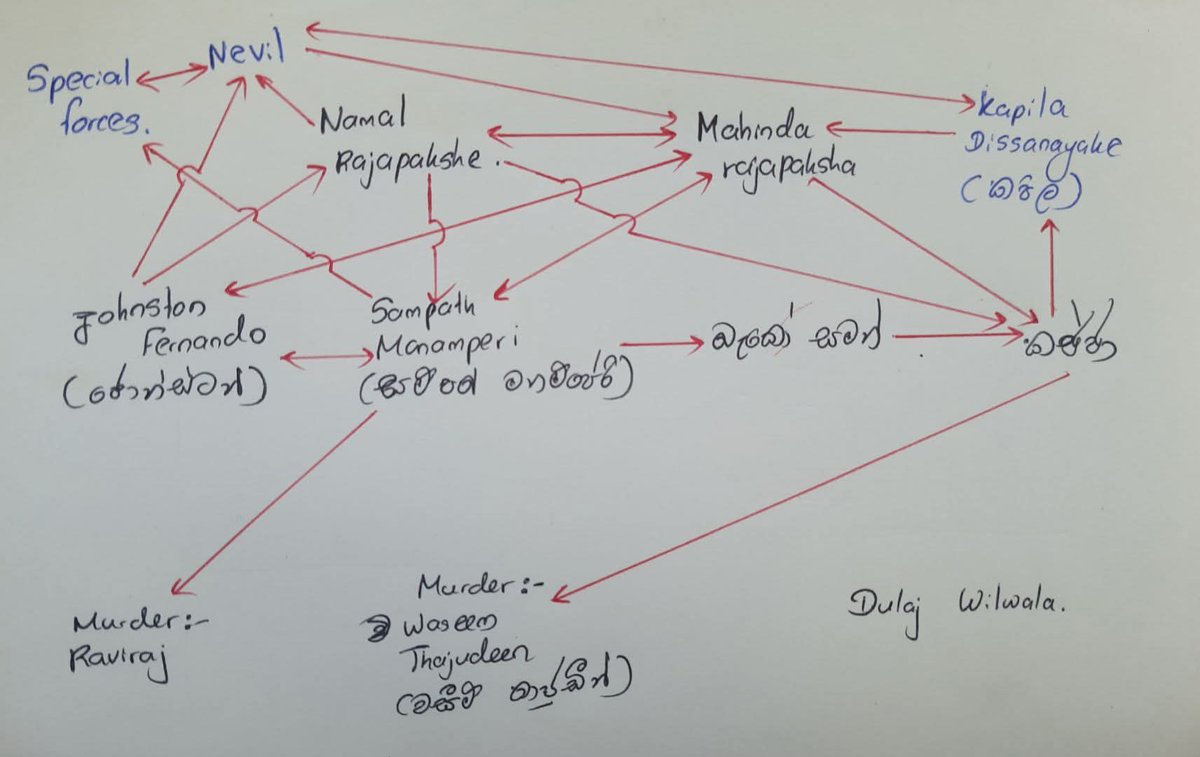 Nevil
Special
forces.
Namal
Rajapakshe.
Mahinda
rajapaksha
Kapila
Dissanayake
(කපිල)
Johnston
Fernando
(ජොන්ස්ටන්)
Sampath
Manamperi
(සම්පත් මනම්පේරි)
බැකෝ සමන්
කජ්ජා
Murder:-
Raviraj
Murder:-
Waseem
Thajudeen
(වසීම් තාජුඩීන්)
Dulaj Wilwala.